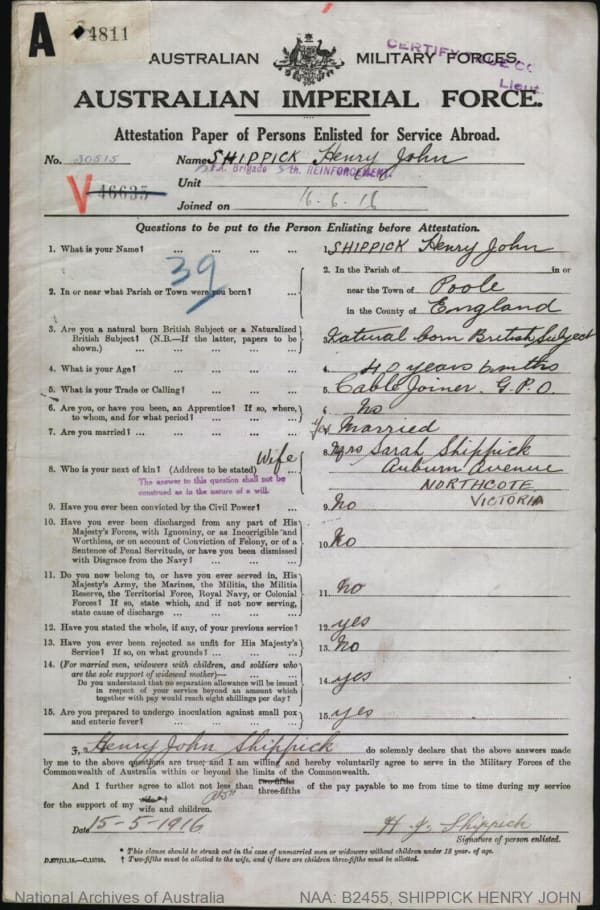 A
4811
AUSTRALIAN MILITARY FORCES.
CERTIFY
Lieut.
AUSTRALIAN IMPERIAL FORCE.
Attestation Paper of Persons Enlisted for Service Abroad.
No. 30515 Name SHIPPICK Henry John
F.A. Brigade 5th. REINFORCEMENT.
V 46635 Unit
Joined on 6.16
Questions to be put to the Person Enlisting before Attestation.
1. What is your Name? ... ... ... ... 1. SHIPPICK Henry John
39
2. In or near what Parish or Town were you born? ... 2. In the Parish of in or
near the Town of Poole
in the County of England
3. Are you a natural born British Subject or a Naturalized
British Subject? (N.B.—If the latter, papers to be
shown.) ... ... ... ... 3. Natural born British Subject
4. What is your Age? ... ... ... ... 4. 40 years 6 mths
5. What is your Trade or Calling? ... ... ... 5. Cable Joiner. G.P.O.
6. Are you, or have you been, an Apprentice? If so, where,
to whom, and for what period? ... ... ... 6. No
7. Are you married? ... ... ... ... 7. Yes Married
8. Who is your next of kin? (Address to be stated) Wife ... 8. Mrs Sarah Shippick
Auburn Avenue
NORTHCOTE
VICTORIA
The answer to this question shall not be
construed as in the nature of a will.
9. Have you ever been convicted by the Civil Power? ... 9. No
10. Have you ever been discharged from any part of His
Majesty's Forces, with Ignominy, or as Incorrigible and
Worthless, or on account of Conviction of Felony, or of a
Sentence of Penal Servitude, or have you been dismissed
with Disgrace from the Navy? ... ... ... 10. No
11. Do you now belong to, or have you ever served in, His
Majesty's Army, the Marines, the Militia, the Militia
Reserve, the Territorial Force, Royal Navy, or Colonial
Forces? If so, state which, and if not now serving,
state cause of discharge ... ... ... ... 11. No
12. Have you stated the whole, if any, of your previous service? 12. yes
13. Have you ever been rejected as unfit for His Majesty's
Service? If so, on what grounds? ... ... ... 13. No
14. (For married men, widowers with children, and soldiers who
are the sole support of widowed mother)—
Do you understand that no separation allowance will be issued
in respect of your service beyond an amount which
together with pay would reach eight shillings per day? 14. yes
15. Are you prepared to undergo inoculation against small pox
and enteric fever? ... ... ... ... 15. yes
I, Henry John Shippick do solemnly declare that the above answers made
by me to the above questions are true, and I am willing and hereby voluntarily agree to serve in the Military Forces of the
Commonwealth of Australia within or beyond the limits of the Commonwealth.
And I further agree to allot not less than two-fifths three-fifths of the pay payable to me from time to time during my service
for the support of my wife wife and children.
Date 15-5-1916 H. J. Shippick
Signature of person enlisted.
* This clause should be struck out in the case of unmarried men or widowers without children under 18 year. of age.
† Two-fifths must be allotted to the wife, and if there are children three-fifths must be allotted.
National Archives of Australia NAA: B2455, SHIPPICK HENRY JOHN